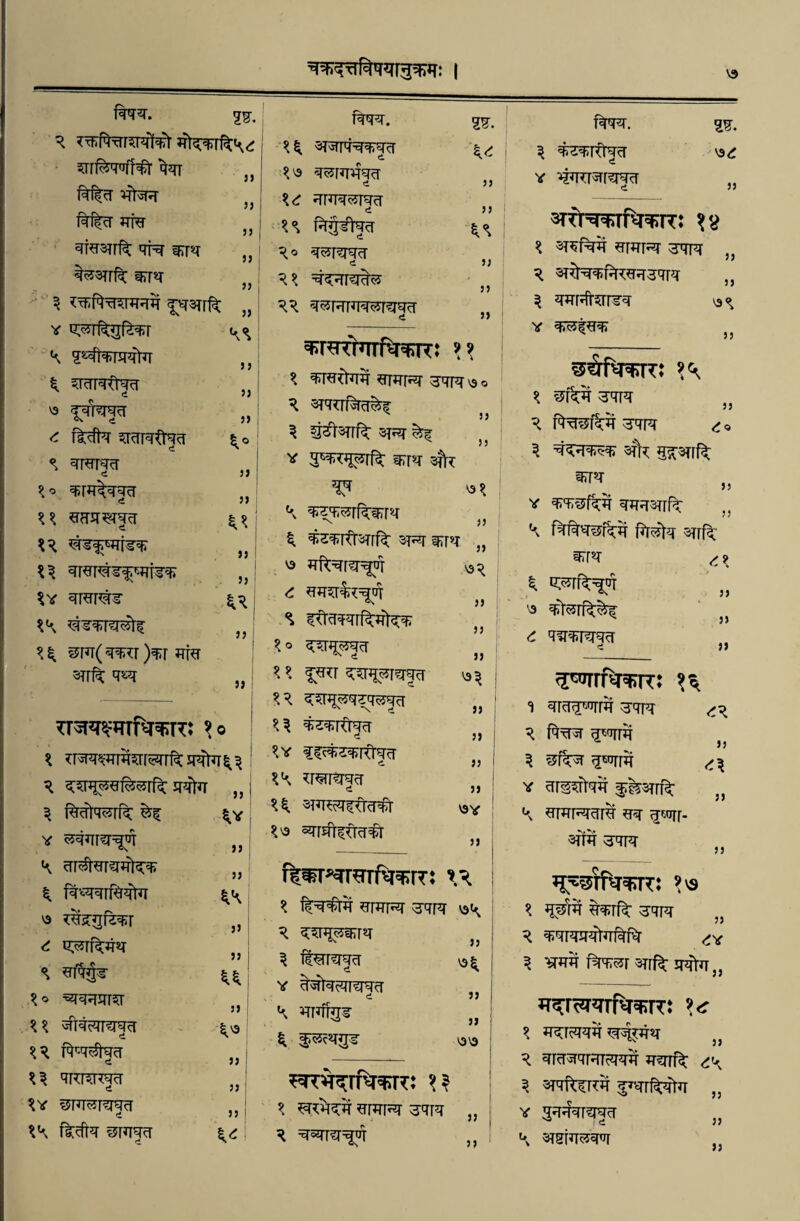 चक्रदत्तविषयानुक्रमः । ७
विषय. पृष्ठ.
२ रक्तपित्ताशवालेको
विहित भोजन „
विहित मांस „
३ रक्तपित्तशामनमें दूधआदि „
४ एलादिगुटिका ५९
५ पृथ्वीकाप्रयोग „
६ शतावरीघृत „
७ दूर्वाद्यघृत „
८ द्वितीय शतावरीघृत ६०
९ वासाघृत „
१० कामदेवघृत „
११ सप्तप्रस्थघृत ६१
१२ खंडकूष्मांडक „
१३ वासाखंडकूष्मांडक „
१४ वासाखंड ६२
१५ खंडकाद्यलोह „
आदि पथ्य „
राजयक्ष्माधिकारः १०
१ राजयक्ष्मामेंशालिआदिप्रयोग६३
२ दशमूलबलादि प्रयोग „
४ लवंगादिचूर्ण „
५ तालीसाद्यमोदक „
६ विन्ध्यवासियोग ६५
७ रसेन्द्रगुटिका „
८ एलादिमन्थ „
९ सर्पिर्गुड ६६
१० च्यवनप्राश „
११ जीवन्त्यादिघृत ६७
१२ पिप्पलीघृत „
१३ पाराशरघृत „
१४ छागलाद्यघृत „
१५ द्वितीय छागघृत ६८
विषय. पृष्ठ.
१६ अजापंचकघृत ६८
१७ बलागर्भघृत „
१८ नागबलाघृत „
१९ निर्गुंडीघृत ६९
२० बलाद्यघृत „
२१ चंदनादितैल „
कासरोगाधिकारः ११
१ कासरोगमें सामान्य उपाय७०
२ अपराजितालेह „
३ शुंठीआदि अन्य लेह „
यूष ७१
५ कट्फलादिक्वाथ „
६ कंटकारीआदि अन्य क्वाथ „
७ मरिचाद्यचूर्ण ७२
८ समशर्करचूर्ण „
९ हरीतक्यादिमोदक „
१० दशमूलघृत „
११ दूसरा दशमूलाद्यघृत ७३
१२ दशमूलषट्पलघृत „
१३ कंटकारीघृत „
१४ बृहत्कंटकारीघृत „
१५ रास्नाद्यघृत „
१६ अगस्त्यहरीतकी ७४
१७ व्याघ्रीहरीतकी „
हिक्काश्वासाधिकारः १२
१ हिक्कामें सामान्य उपाय ७५
२ दशमूलक्वाथ „
३ हिंस्राद्यघृत ७६
४ तेजोवत्याद्यघृत „
५ भार्गीगुड „
६ कुलत्थगुड ७७
स्वरभेदाधिकारः १३
१ स्वरभेदमें सामान्य उपाय „
२ चव्याद्यचूर्ण „
विषय. पृष्ठ.
३ कंटकारीघृत ७८
४ भृंगराजाद्यघृत „
अरोचकाधिकारः १४
१ अरुचिमें सामान्य उपाय „
२ अरोचकनिवारणउपाय „
३ यमानीषाडव ७९
४ कलहंसक „
छर्द्यधिकारः १५
१ छर्दिमें उपाय „
२ पित्तछर्दिमें उपाय ८०
क्वाथ „
४ कफछर्दिमें वमनआदि „
५ त्रिदोषछर्दिमें गिलोय आदि
क्वाथ ८१
६ एलादिचूर्ण „
७ कोलादिलेह „
८ पद्मकाद्यघृत „
तृष्णाधिकारः १६
१ वाततृष्णामें उपाय ८२
२ पित्तज तृष्णामें „
३ क्षतज तृष्णामें ८३
४ तालुशोषमें दूधआदि „
५ सामान्यतासे सब तृष्णा-
ओंमें उपाय „
मूर्छाधिकारः १७
१ मूर्छामें सेकआदि उपाय „
२ कफप्रयोगविधि ८४
३ भ्रममें त्रिफला आदि प्रयोग„
मदात्ययाधिकारः १८
१ मदात्ययमें खर्जूरमंथ „
२ पानआत्ययमें मद्यआदि ८५
४ पुनर्नवाद्यघृत „